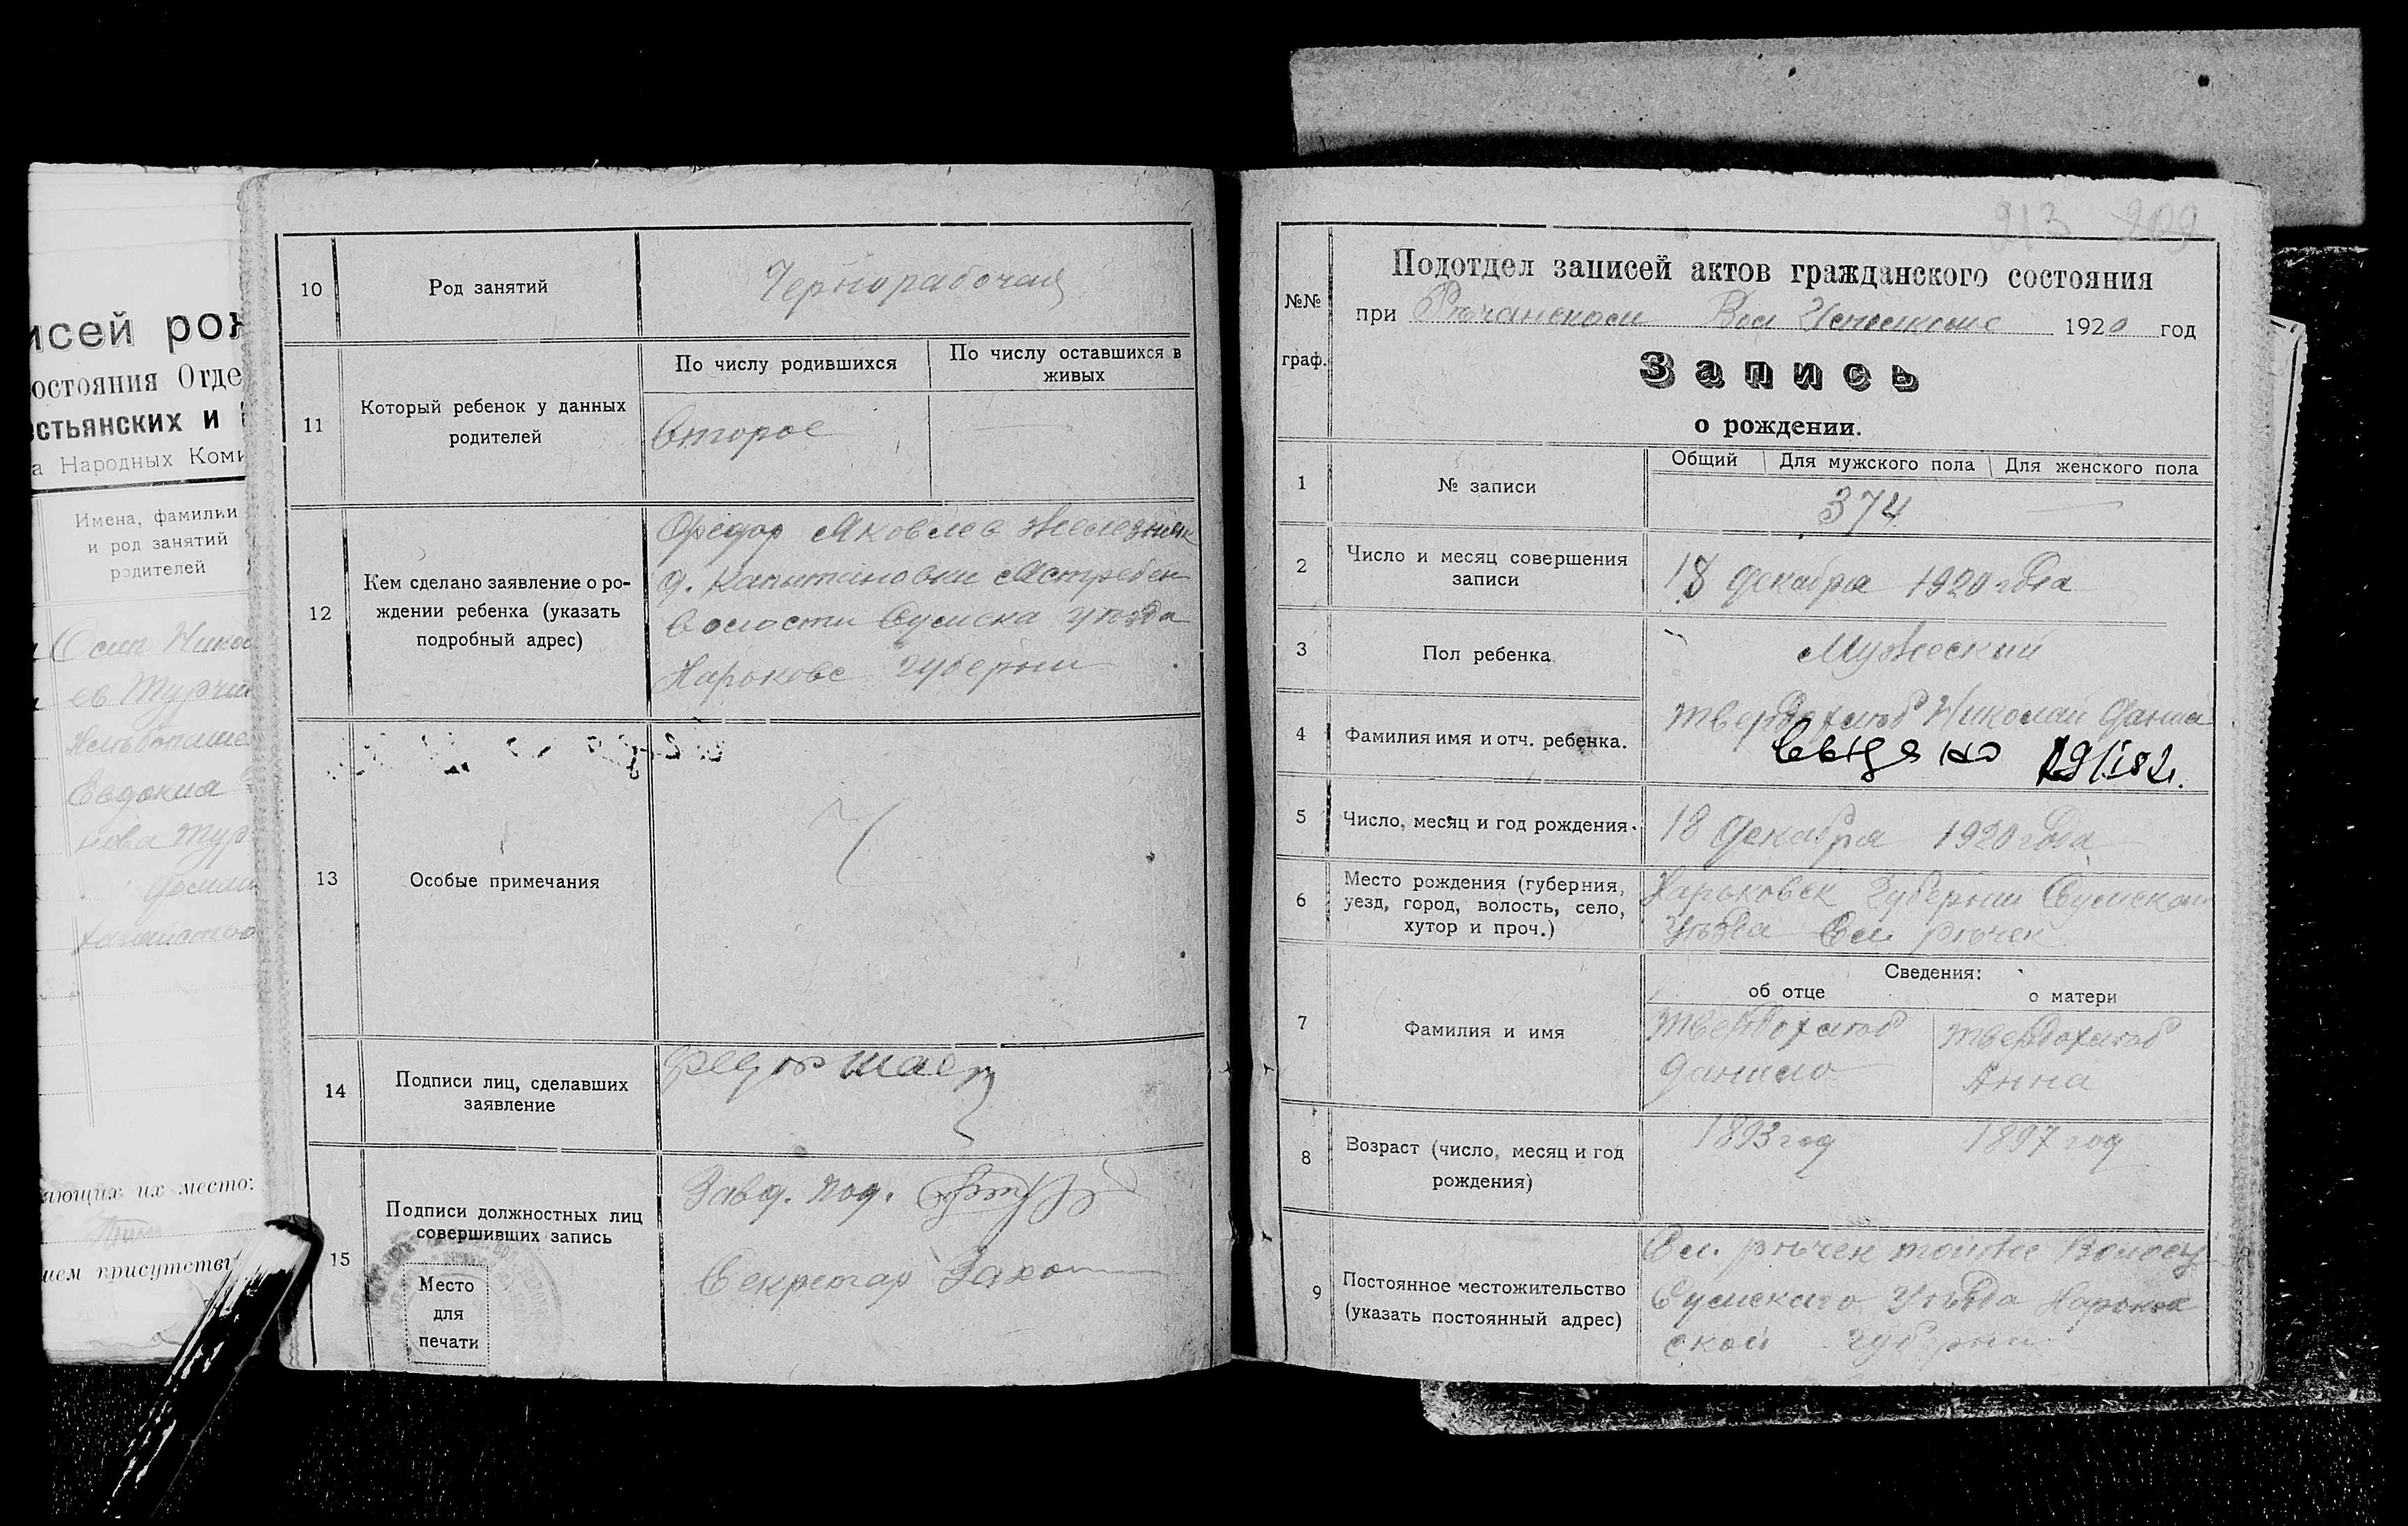 исей рож
остояния Отде
естьянских и
а Народных Коми
Имена, фамилии
и род занятий
родителей
Осип Никол
ев Турчин
Евдокия
нова Тур
ающих их место:
ием присутстви
10
Род занятий
Чернорабочая
11
Который ребенок у данных
родителей
По числу родившихся
По числу оставшихся в
живых
второе
12
Кем сделано заявление о ро-
ждении ребенка (указать
подробный адрес)
Федор Яковлев Железняк
д. Капитановки Ястребен
волости Сумска уезда
Харьковс губернии
13
Особые примечания
14
Подписи лиц, сделавших
заявление
15
Подписи должностных лиц
совершивших запись
Место
для
печати
Завд. под.
Секретар
213 202
№№
граф.
Подотдел записей актов гражданского состояния
при Ръчанском Вол Исполкоме 1920 год
Запись
о рождении.
1
№ записи
Общий Для мужского пола Для женского пола
374 —
2
Число и месяц совершения
записи
18 декабра 1920 года
3
Пол ребенка
Мужеский
4
Фамилия имя и отч. ребенка.
Твердохлѣб Николай Данил
5
Число, месяц и год рождения.
18 декабра 1920 года
6
Место рождения (губерния,
уезд, город, волость, село,
хутор и проч.)
Харьковск Губернии Сумскаго
Уѣзда Сел Рѣчек
Сведения:
об отце
о матери
7
Фамилия и имя
Твердохлѣб
Данило
Твердохлѣб
Анна
8
Возраст (число, месяц и год
рождения)
1893 год
1897 год
9
Постоянное местожительство
(указать постоянный адрес)
Сел. Рѣчек тойже Волост
Сумскаго Уѣзда Харьков
ской губернии